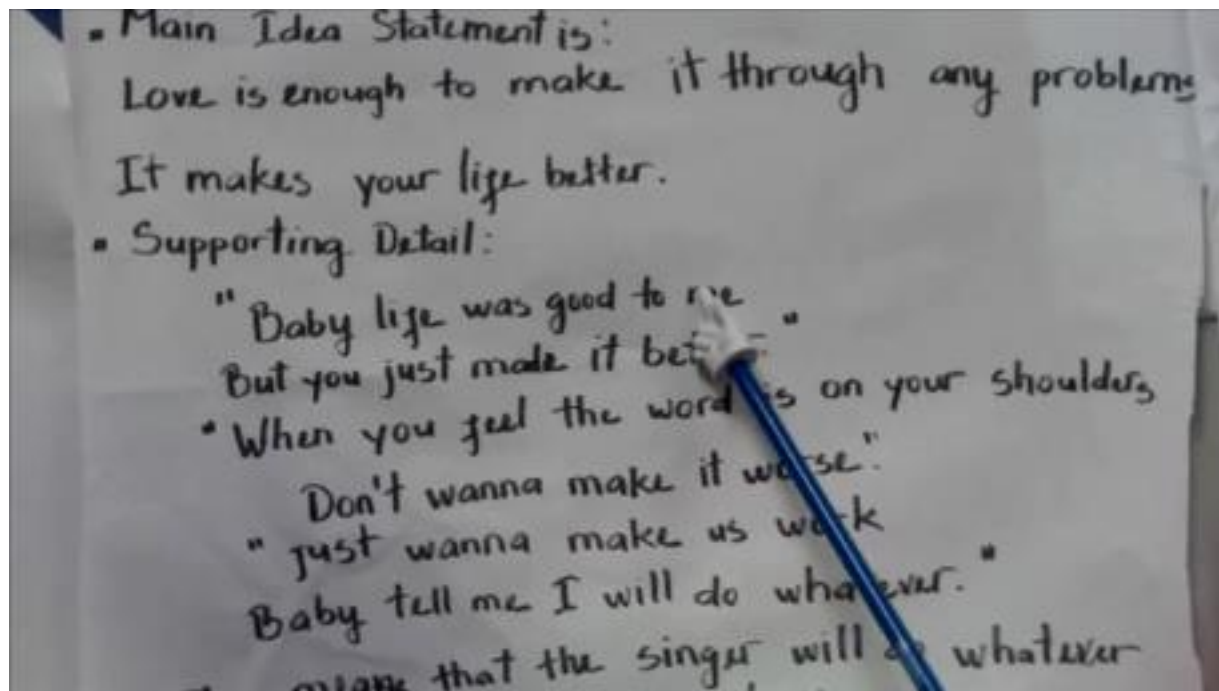 • Main Idea Statement is:
Love is enough to make it through any problems
It makes your life better.
• Supporting Detail:
"Baby life was good to me
But you just made it "
"When you feel the word is on your shoulders
Don't wanna make it worse".
"just wanna make us work
Baby tell me I will do whatever."
that the singer will whatever